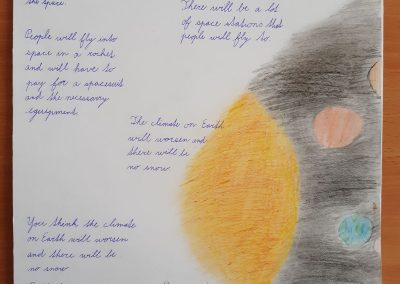 the space.
There will be a lot
of space stations that
people will fly to.
People will fly into
space in a rocket
and will have to
pay for a spacesuit
and the necessary
equipment.
The climate on Earth
will worsen and
there will be
no snow.
You think the climate
on Earth will worsen
and there will be
no snow